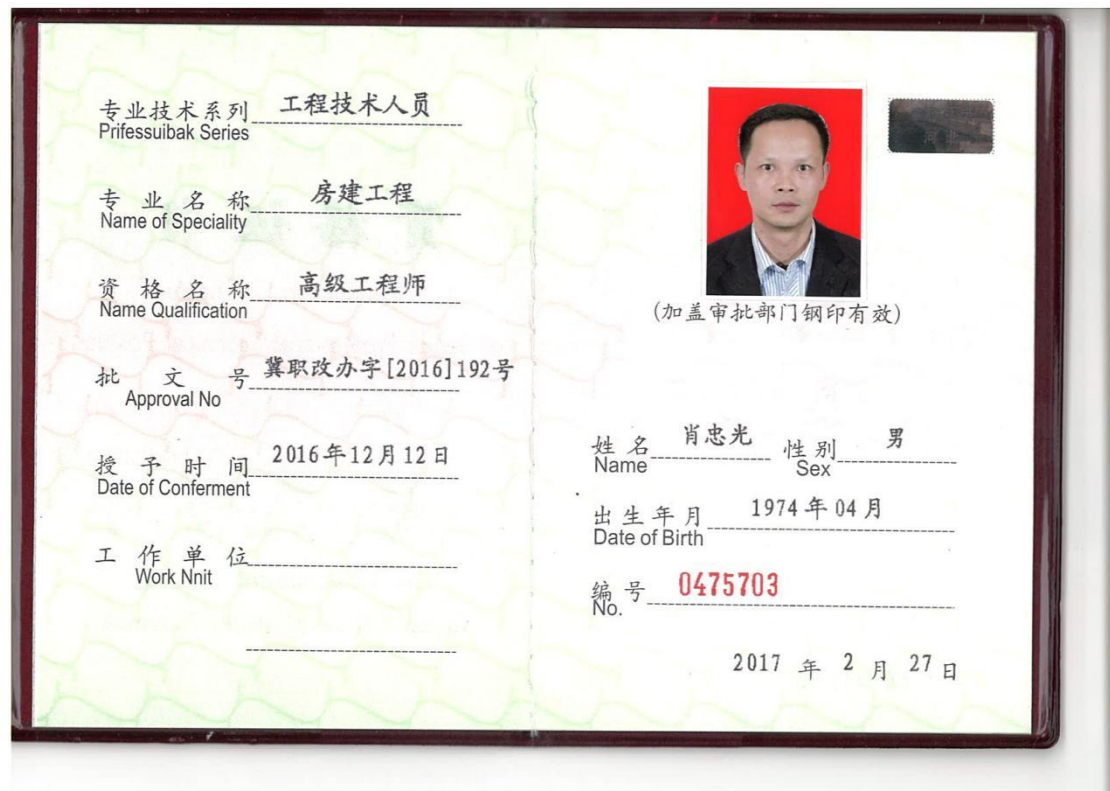 专业技术系列 工程技术人员
Prifessuibak Series
专业名称 房建工程
Name of Speciality
资格名称 高级工程师
Name Qualification
批文号 冀职改办字[2016]192号
Approval No
授予时间 2016年12月12日
Date of Conferment
工作单位
Work Nnit
(加盖审批部门钢印有效)
姓名 肖忠光 性别 男
Name Sex
出生年月 1974年04月
Date of Birth
编号 0475703
No.
2017 年 2 月 27 日